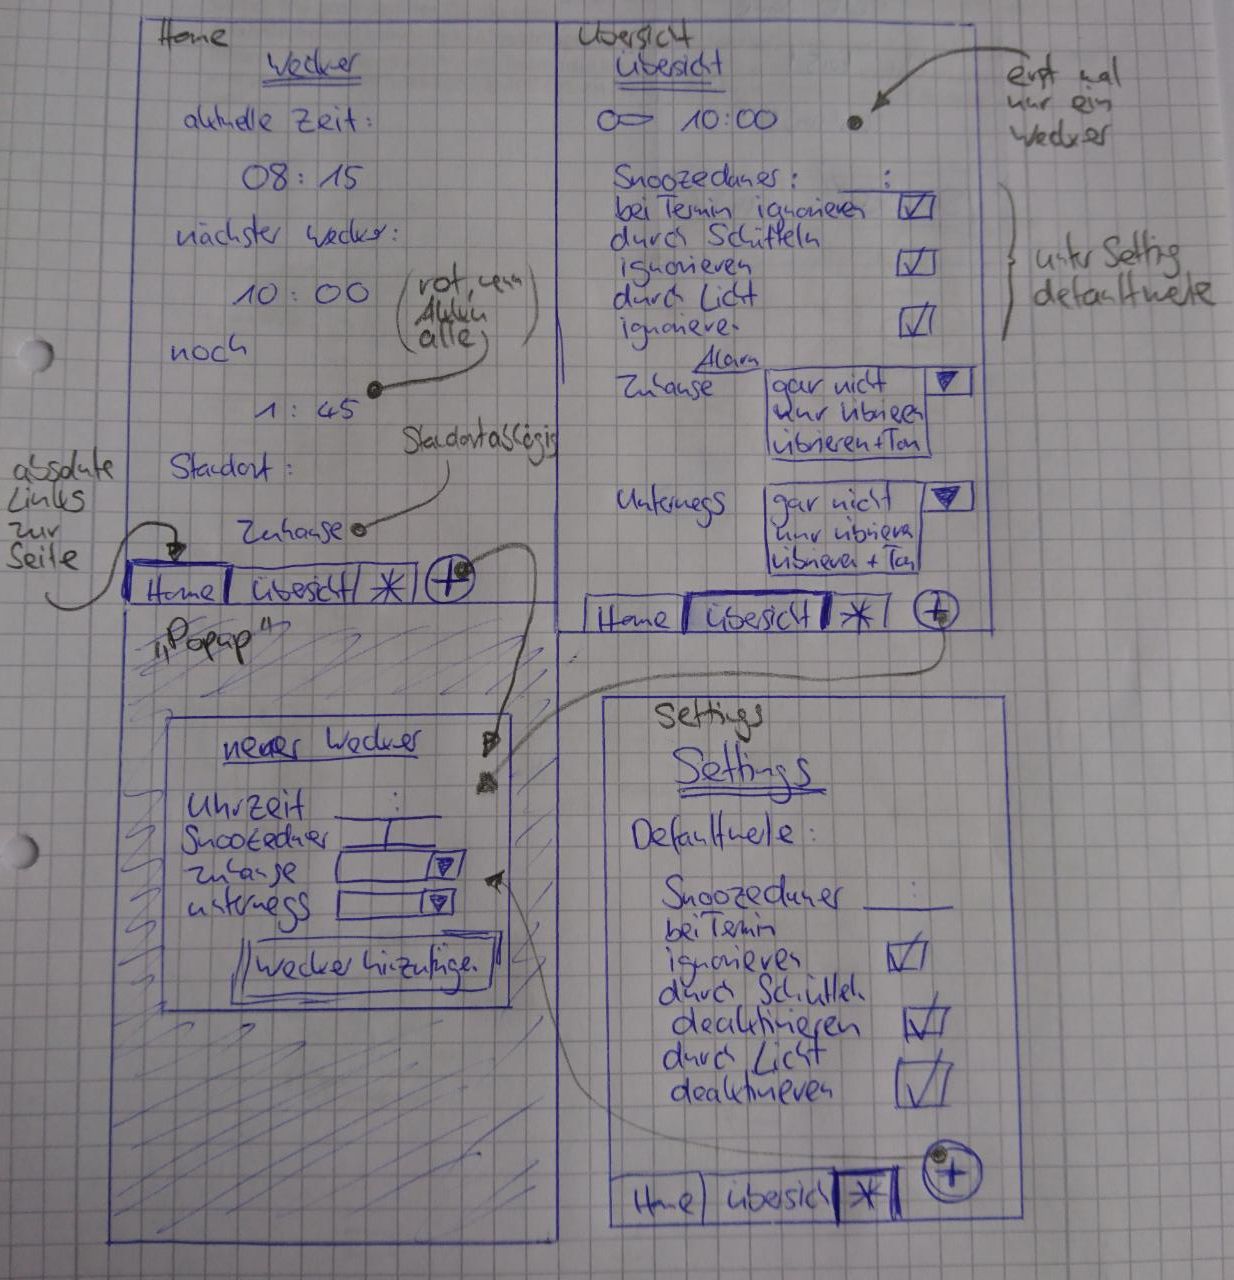 Home
Wecker
aktuelle Zeit:
08:15
nächster Wecker:
10:00
(rot, wenn
Akku
alle)
noch
1:45
Standortabhägig
Standort:
Zuhause
absolute
Links
zur
Seite
Home Übersicht * +
Übersicht
Übersicht
10:00
erst mal
nur ein
Wecker
Snoozedauer: :
bei Termin ignorieren
durch Schütteln
ignorieren
durch Licht
ignorieren
unter Setting
defaultwerte
Alarm
Zuhause gar nicht
nur vibrieren
vibrieren+Ton
Unterwegs gar nicht
nur vibrieren
vibrieren + Ton
Home Übersicht * +
„Popup"
neuer Wecker
Uhrzeit :
Snoozedauer
Zuhause
unterwegs
Wecker hinzufügen
Settings
Settings
Defaultwerte:
Snoozedauer :
bei Termin
ignorieren
durch Schütteln
deaktivieren
durch Licht
deaktivieren
Home Übersicht * +